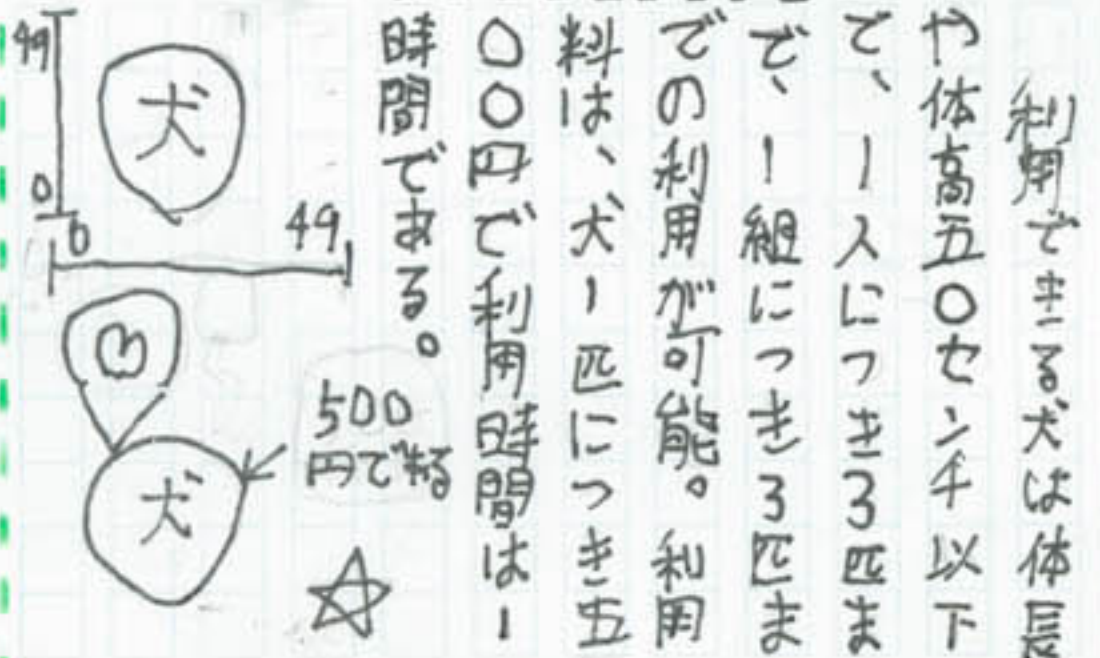 利用できる犬は体長
や体高五〇センチ以下
で、一人につき3匹ま
で、一組につき3匹ま
での利用が可能。利用
料は、犬一匹につき五
〇〇円で利用時間は一
時間である。
49
犬
0
0
49
500
円で
犬